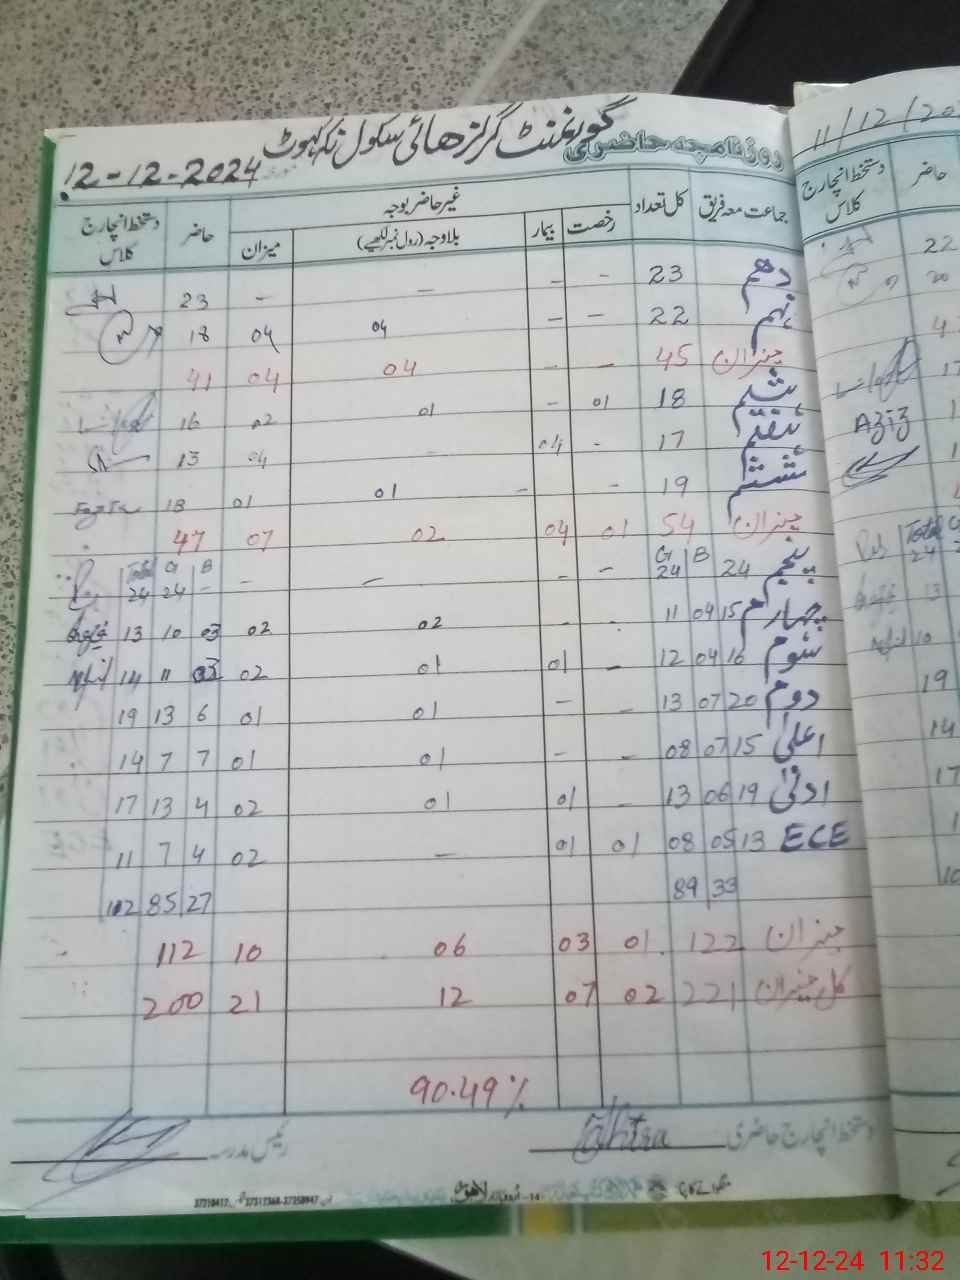 گورنمنٹ گرلز ھائی سکول نکہ کہوٹ
روزنامچہ حاضری
12-12-2024
جماعت معہ فریق کل تعداد غیر حاضر بوجہ حاضر دستخط انچارج کلاس
رخصت بیمار بلاوجہ (رول نمبر لکھیے) میزان
دھم 23 - - - - 23
نہم 22 - - 04 04 18
میزان 45 - - 04 04 41
ہشتم 18 01 - 01 02 16
ہفتم 17 - 04 - 04 13
ششم 19 - - 01 01 18
میزان 54 01 04 02 07 47
B G B G Total
پنجم 24 24 - - - - - 24 24
چہارم 15 04 11 - - 02 02 03 10 13
سوم 16 04 12 - 01 01 02 03 11 14
دوم 20 07 13 - - 01 01 6 13 19
اعلیٰ 15 07 08 - - 01 01 7 7 14
ادنیٰ 19 06 13 - 01 01 02 4 13 17
ECE 13 05 08 01 01 - 02 4 7 11
33 89 27 85 102
میزان 122 01 03 06 10 112
کل میزان 221 02 07 12 21 200
90.49%
دستخط انچارج حاضری
رئیس مدرسہ
11/12/20
حاضر دستخط انچارج کلاس
22
20
17
Aziz
Total
24
13
10
19
14
17
12-12-24 11:32